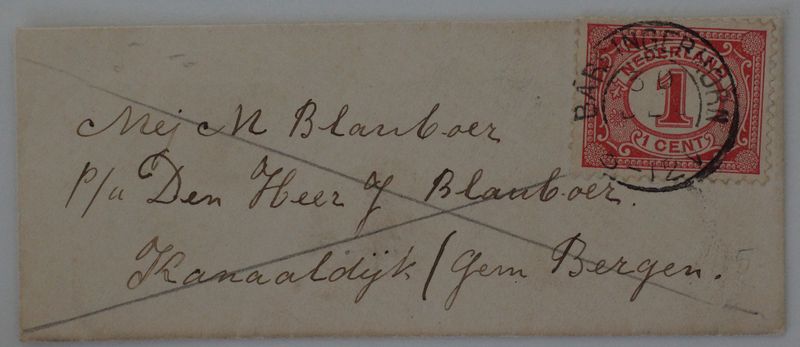 Mej M Blauboer
P/a Den Heer J Blauboer.
Kanaaldijk / Gem Bergen.
NEDERLAND
1
1 CENT
BARSINGERHORN